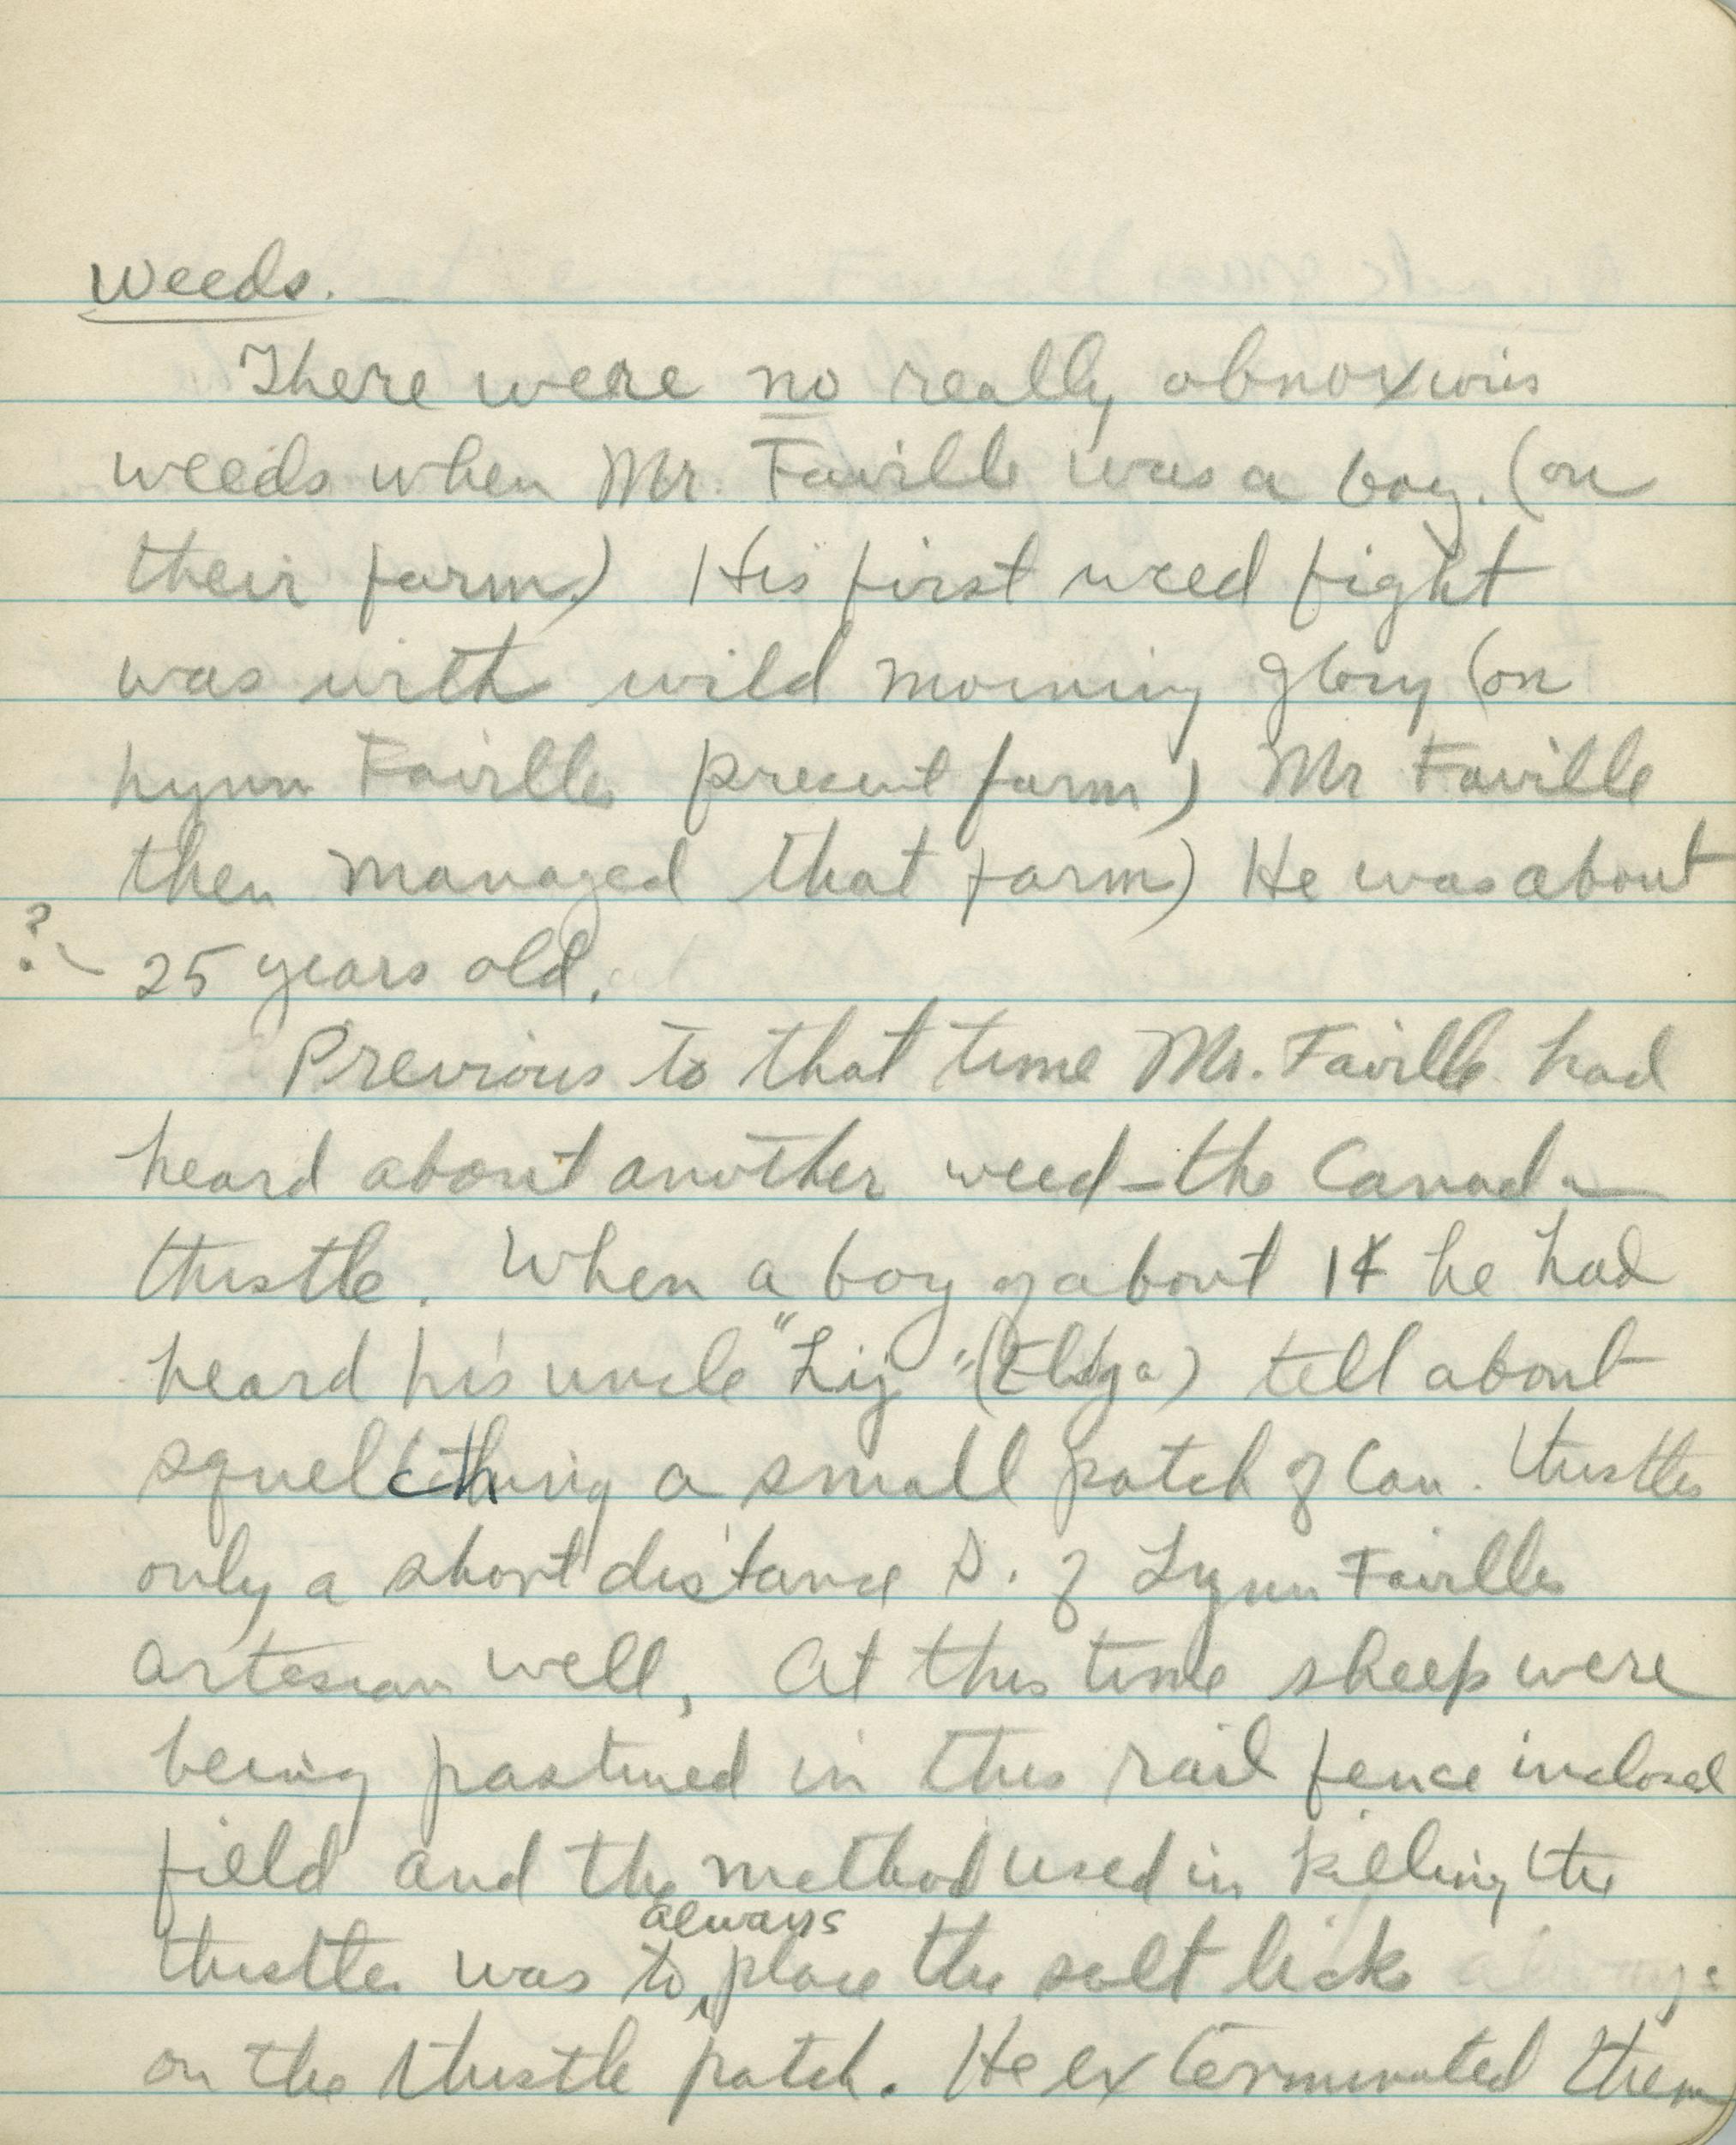 Weeds. —
There were no really obnoxious
weeds when Mr. Faville was a boy. (on
their farm.) His first weed fight
was with wild morning glory (on
Lynn Favilles present farm) Mr Faville
then managed that farm) He was about
? 25 years old.
Previous to that time Mr. Faville had
heard about another weed — the Canada
thistle. When a boy of about 14 he had
heard his uncle "Lij" (Elija) tell about
squelching a small patch of Can. thistles
only a short distance S. of Lynn Favilles
artesian well, At this time sheep were
being pastured in this rail fence inclosed
field and the method used in killing the
thistles was to always place the salt licks
on the thistle patch. He exterminated them